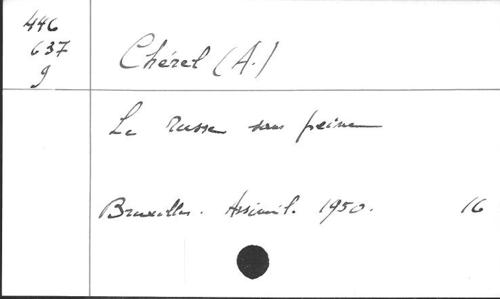 446
637
g
Chérel (A.)
Le russe sans peine
Bruxelles. Assimil. 1950. 16